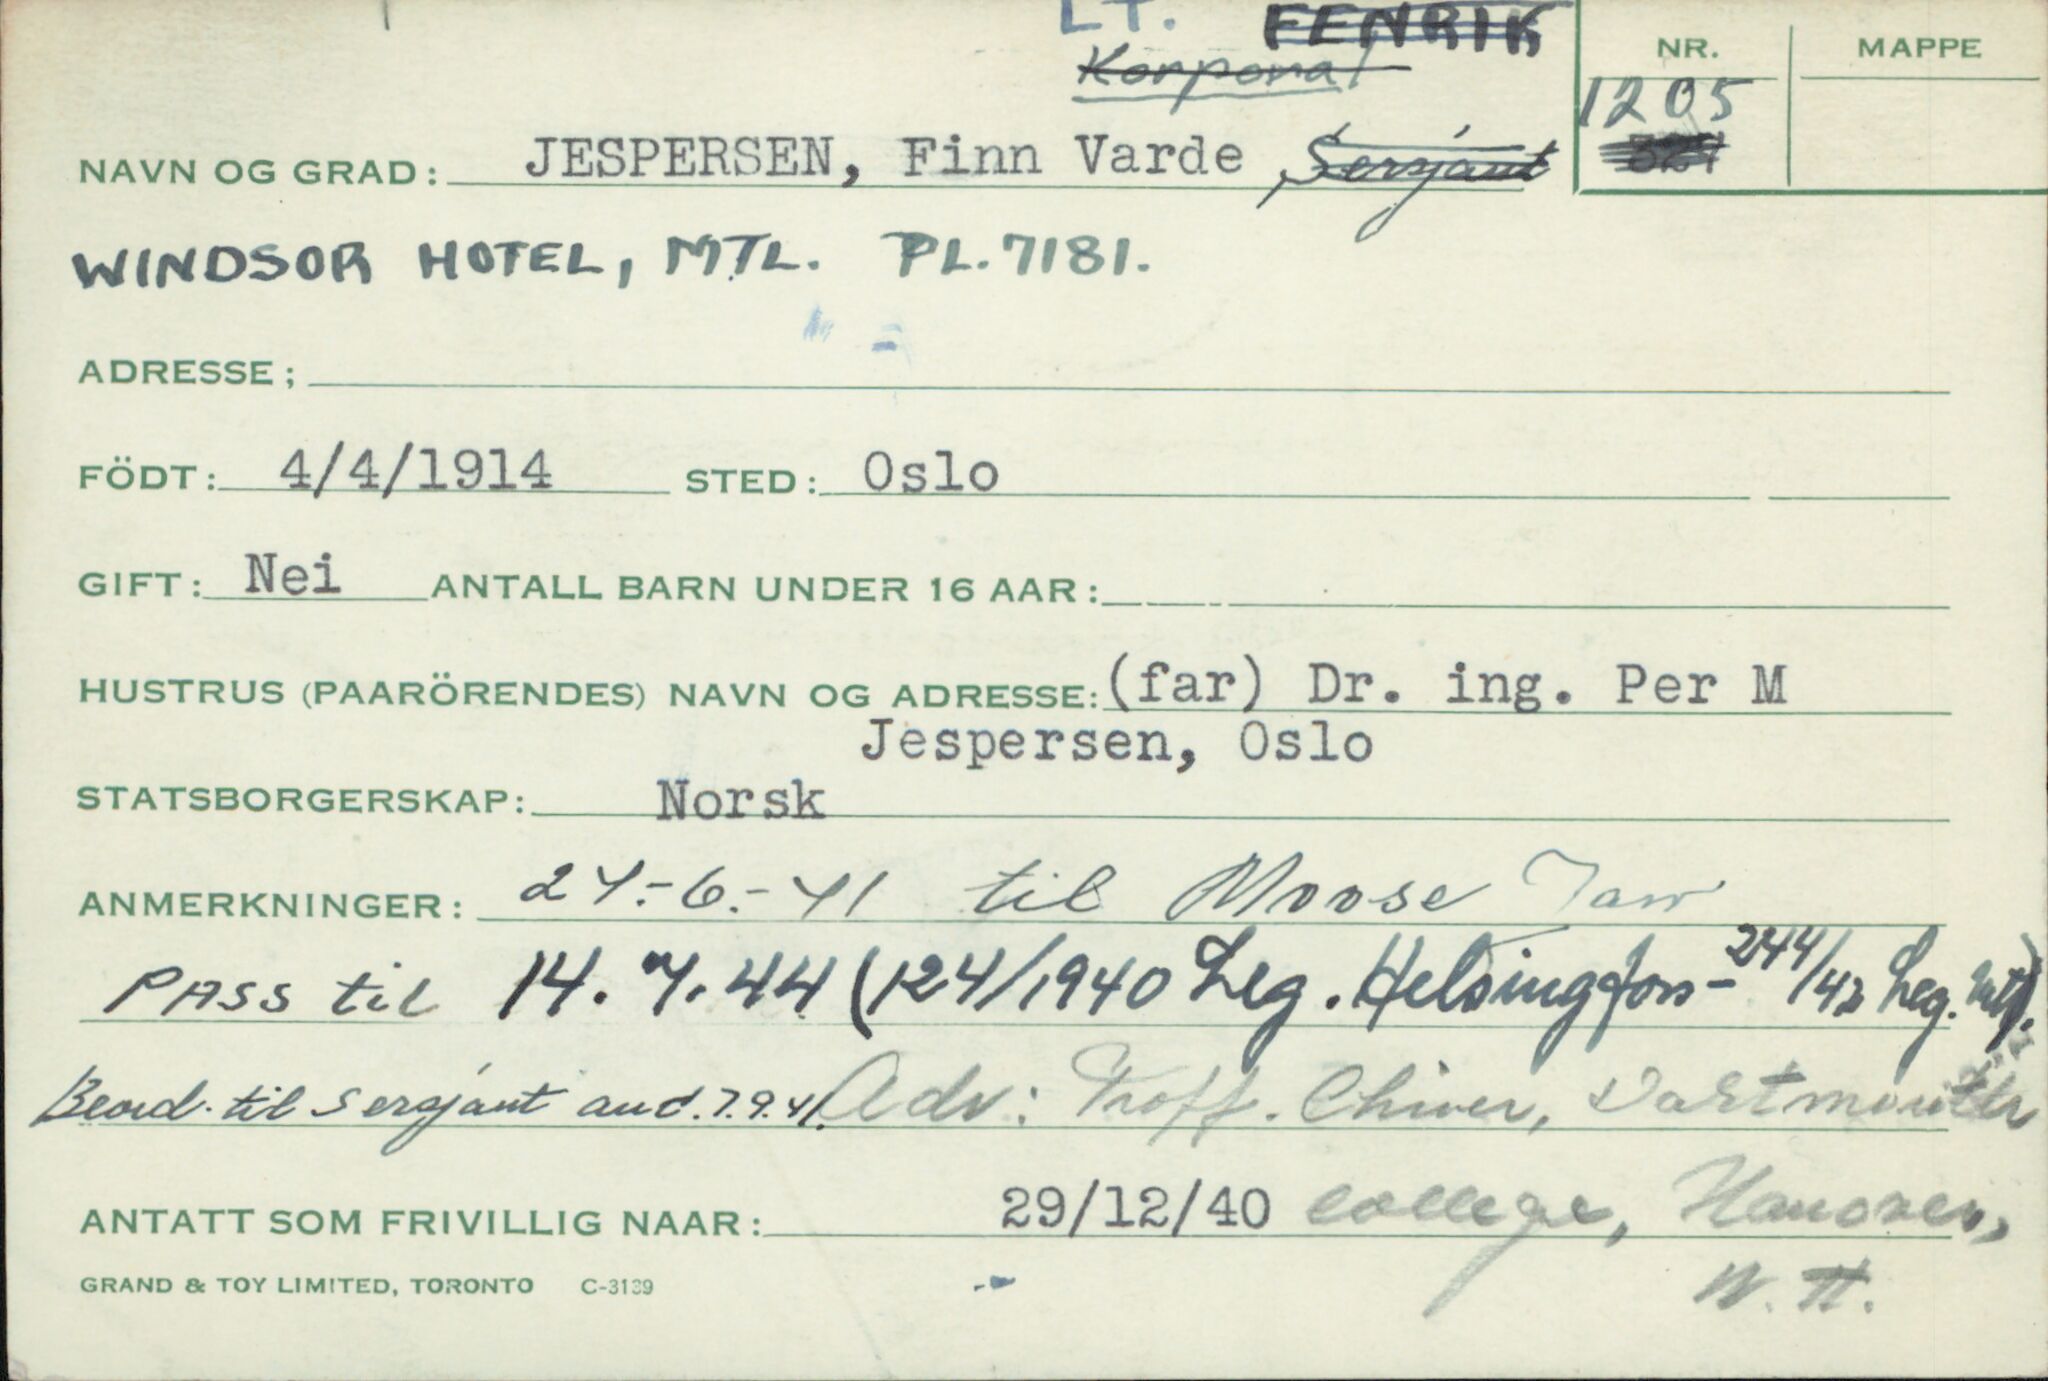 LT. FENRIK
Korporal
NR. MAPPE
1205
NAVN OG GRAD: JESPERSEN, Finn Varde, Sersjant
WINDSOR HOTEL, MTL. PL. 7181.
ADRESSE;
FÖDT: 4/4/1914 STED: Oslo
GIFT: Nei ANTALL BARN UNDER 16 AAR:
HUSTRUS (PAARÖRENDES) NAVN OG ADRESSE: (far) Dr. ing. Per M
Jespersen, Oslo
STATSBORGERSKAP: Norsk
ANMERKNINGER: 24.-6.-41 til Moose Jaw
PASS til 14.7.44 (124/1940 Leg. Helsingfors - 244/42 Leg. Mtl).
Beord. til Sersjant and. 7.9.41. Adr: Proff. Chiver, Dartmouth
ANTATT SOM FRIVILLIG NAAR: 29/12/40 College, Hanover,
N. H.
GRAND & TOY LIMITED, TORONTO C-3139